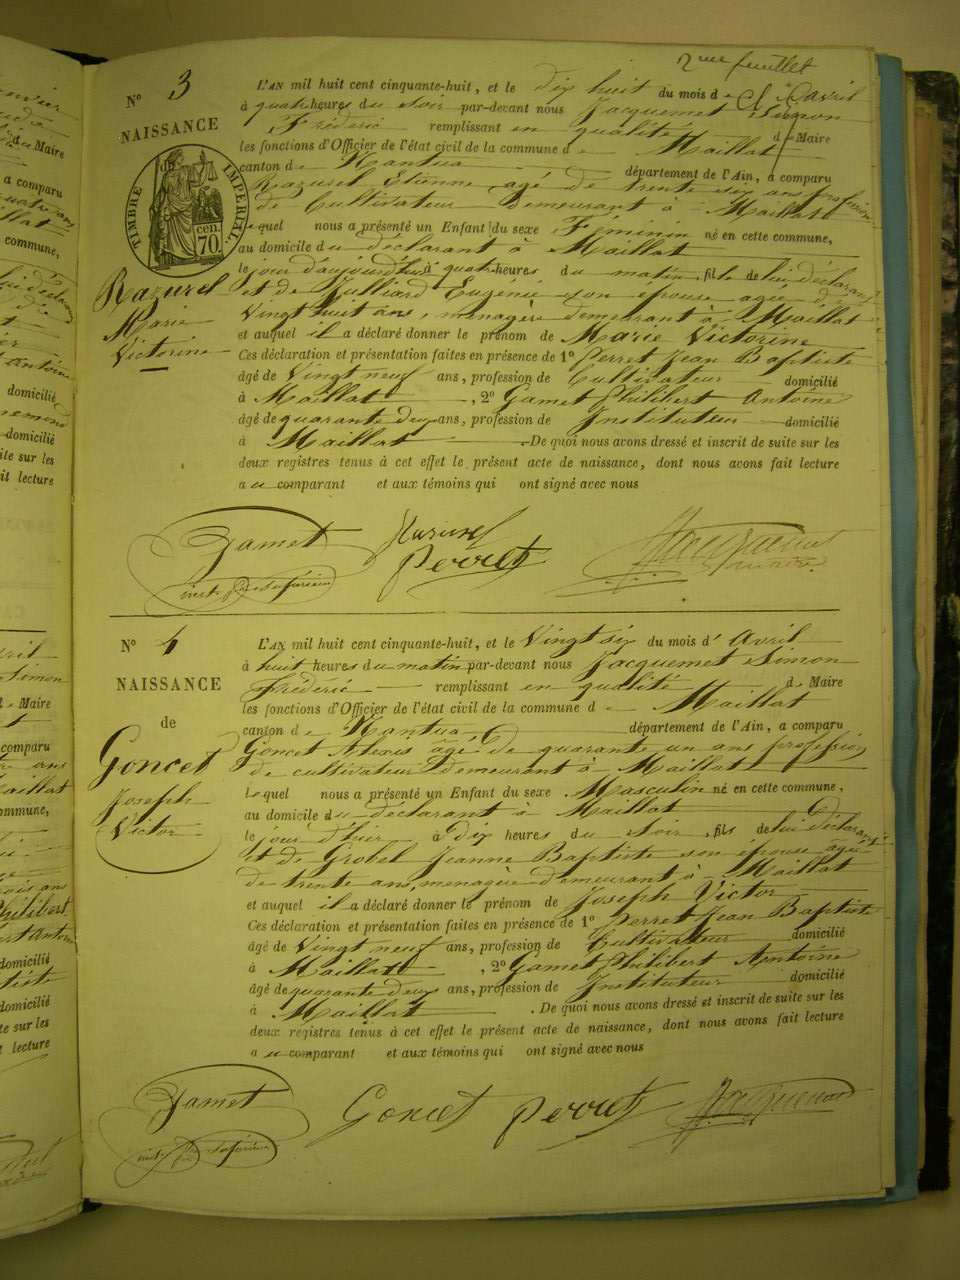 2me feuillet
N° 3
NAISSANCE
TIMBRE IMPERIAL
70 cen.
Razurel
Marie
Victorine
L'AN mil huit cent cinquante-huit, et le dix huit du mois d'avril
à quatre heures du soir par-devant nous Jacquemet Simon
Frédéric remplissant en qualité de Maire
les fonctions d'Officier de l'état civil de la commune de Maillat
canton de Nantua département de l'Ain, a comparu
Razurel Etienne agé de trente six ans profession
de Cultivateur Demeurant à Maillat
lequel nous a présenté un Enfant du sexe Féminin né en cette commune,
au domicile du déclarant à Maillat
le jour d'aujourd'hui à quatre heures du matin, fille de lui déclarant
et de Julliard Eugénie son épouse agée de
Vingt huit ans, menagère demeurant à Maillat
et auquel il a déclaré donner le prénom de Marie Victorine
Ces déclaration et présentation faites en présence de 1° Perret Jean Baptiste
âgé de Vingt neuf ans, profession de Cultivateur domicilié
à Maillat, 2° Gamet Philibert Antoine
âgé de quarante deux ans, profession de Instituteur domicilié
à Maillat. De quoi nous avons dressé et inscrit de suite sur les
deux registres tenus à cet effet le présent acte de naissance, dont nous avons fait lecture
au comparant et aux témoins qui ont signé avec nous
Gamet Razurel Perret Jacquemet
maire
N° 4
NAISSANCE
de
Goncet
Joseph
Victor
L'AN mil huit cent cinquante-huit, et le Vingt six du mois d'Avril
à huit heures du matin par-devant nous Jacquemet Simon
Frédéric remplissant en qualité de Maire
les fonctions d'Officier de l'état civil de la commune de Maillat
canton de Nantua, département de l'Ain, a comparu
Goncet Alexis âgé de quarante un ans profession
de cultivateur demeurant à Maillat
lequel nous a présenté un Enfant du sexe Masculin né en cette commune,
au domicile du déclarant à Maillat
le jour d'hier à dix heures du soir, fils de lui déclarant
et de Grobel Jeanne Baptiste son épouse agée
de trente ans, menagère demeurant à Maillat
et auquel il a déclaré donner le prénom de Joseph Victor
Ces déclaration et présentation faites en présence de 1° Perret Jean Baptiste
âgé de Vingt neuf ans, profession de Cultivateur domicilié
à Maillat, 2° Gamet Philibert Antoine
âgé de quarante deux ans, profession de Instituteur domicilié
à Maillat. De quoi nous avons dressé et inscrit de suite sur les
deux registres tenus à cet effet le présent acte de naissance, dont nous avons fait lecture
au comparant et aux témoins qui ont signé avec nous
Gamet Goncet Perret Jacquemet